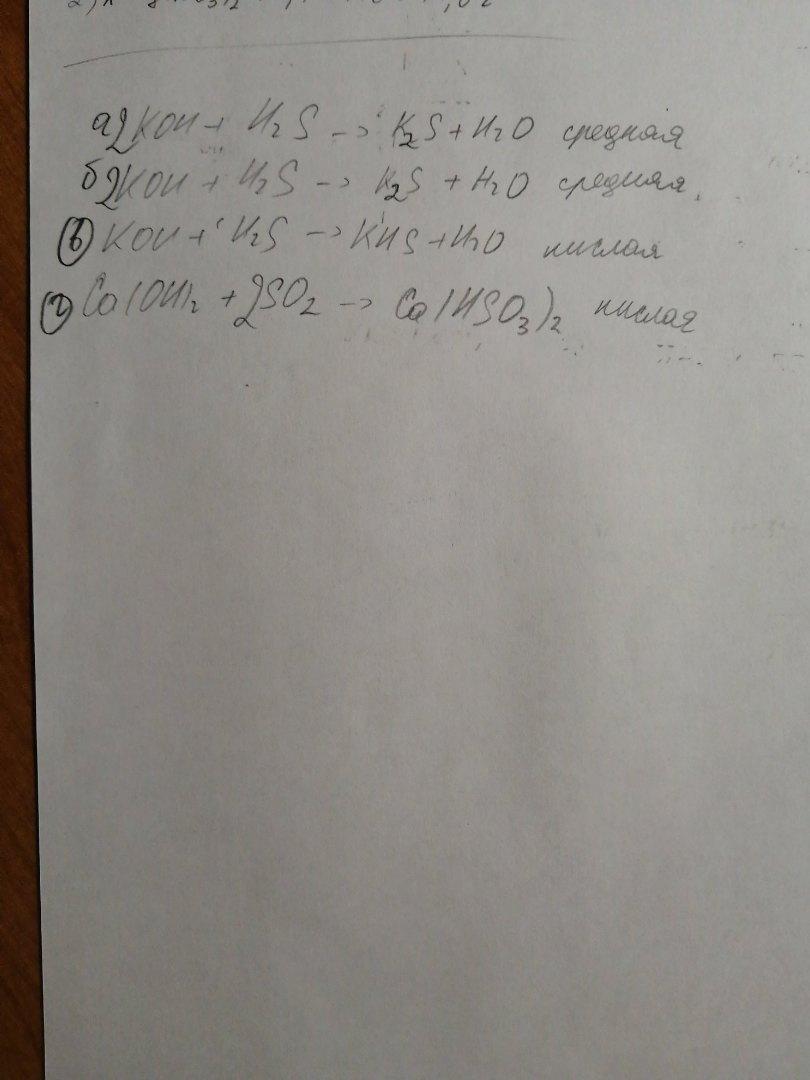 а) 2KOH + H₂S → K₂S + H₂O средная
б) 2KOH + H₂S → K₂S + H₂O средняя.
в) KOH + H₂S → KHS + H₂O кислая
г) Ca(OH)₂ + 2SO₂ → Ca(HSO₃)₂ кислая